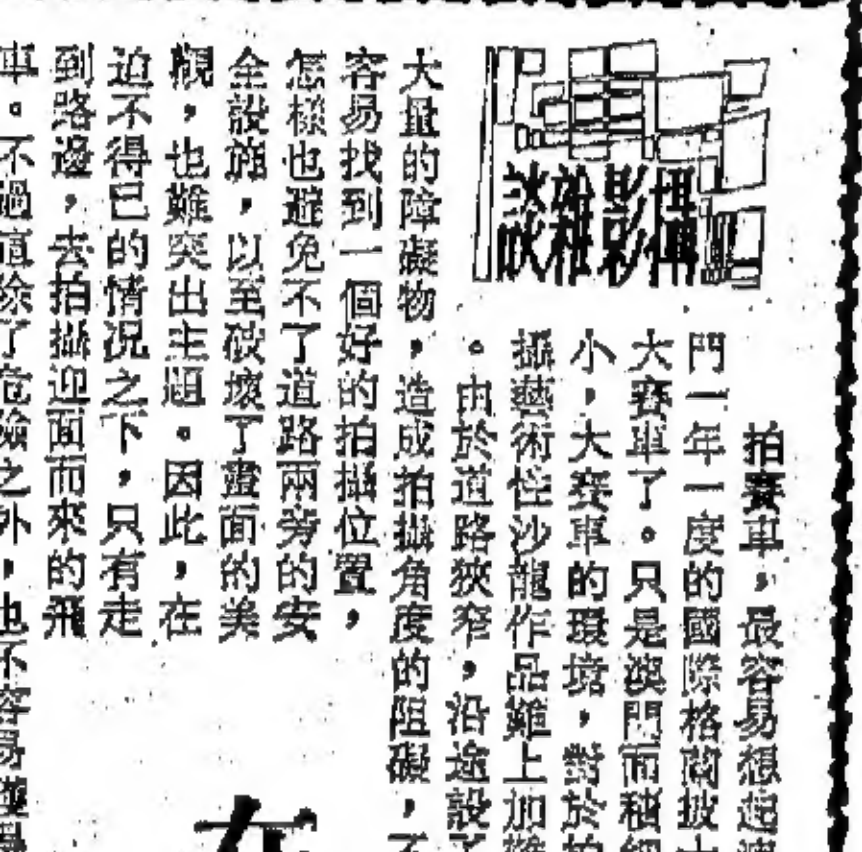 攝影雜談
拍賽車，最容易想起澳
門一年一度的國際格蘭披士
大賽車了。只是澳門面積細
小，大賽車的環境，對於拍
攝藝術性沙龍作品難上加難
。由於道路狹窄，沿途設了
大量的障礙物，造成拍攝角度的阻礙，不
容易找到一個好的拍攝位置，
怎樣也避免不了道路兩旁的安
全設施，以至破壞了畫面的美
觀，也難突出主題。因此，在
迫不得已的情況之下，只有走
到路邊，去拍攝迎面而來的飛
車。不過這除了危險之外，也不容易